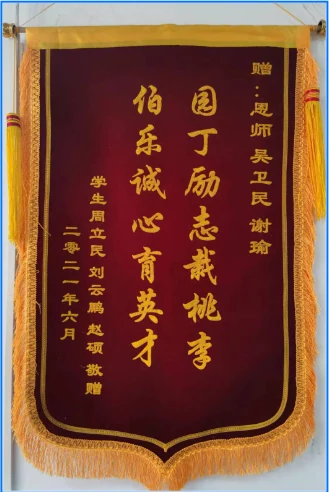 赠：恩师 吴卫民 谢瑜
园丁励志栽桃李
伯乐诚心育英才
学生周立民 刘云鹏 赵硕 敬赠
二零二一年六月